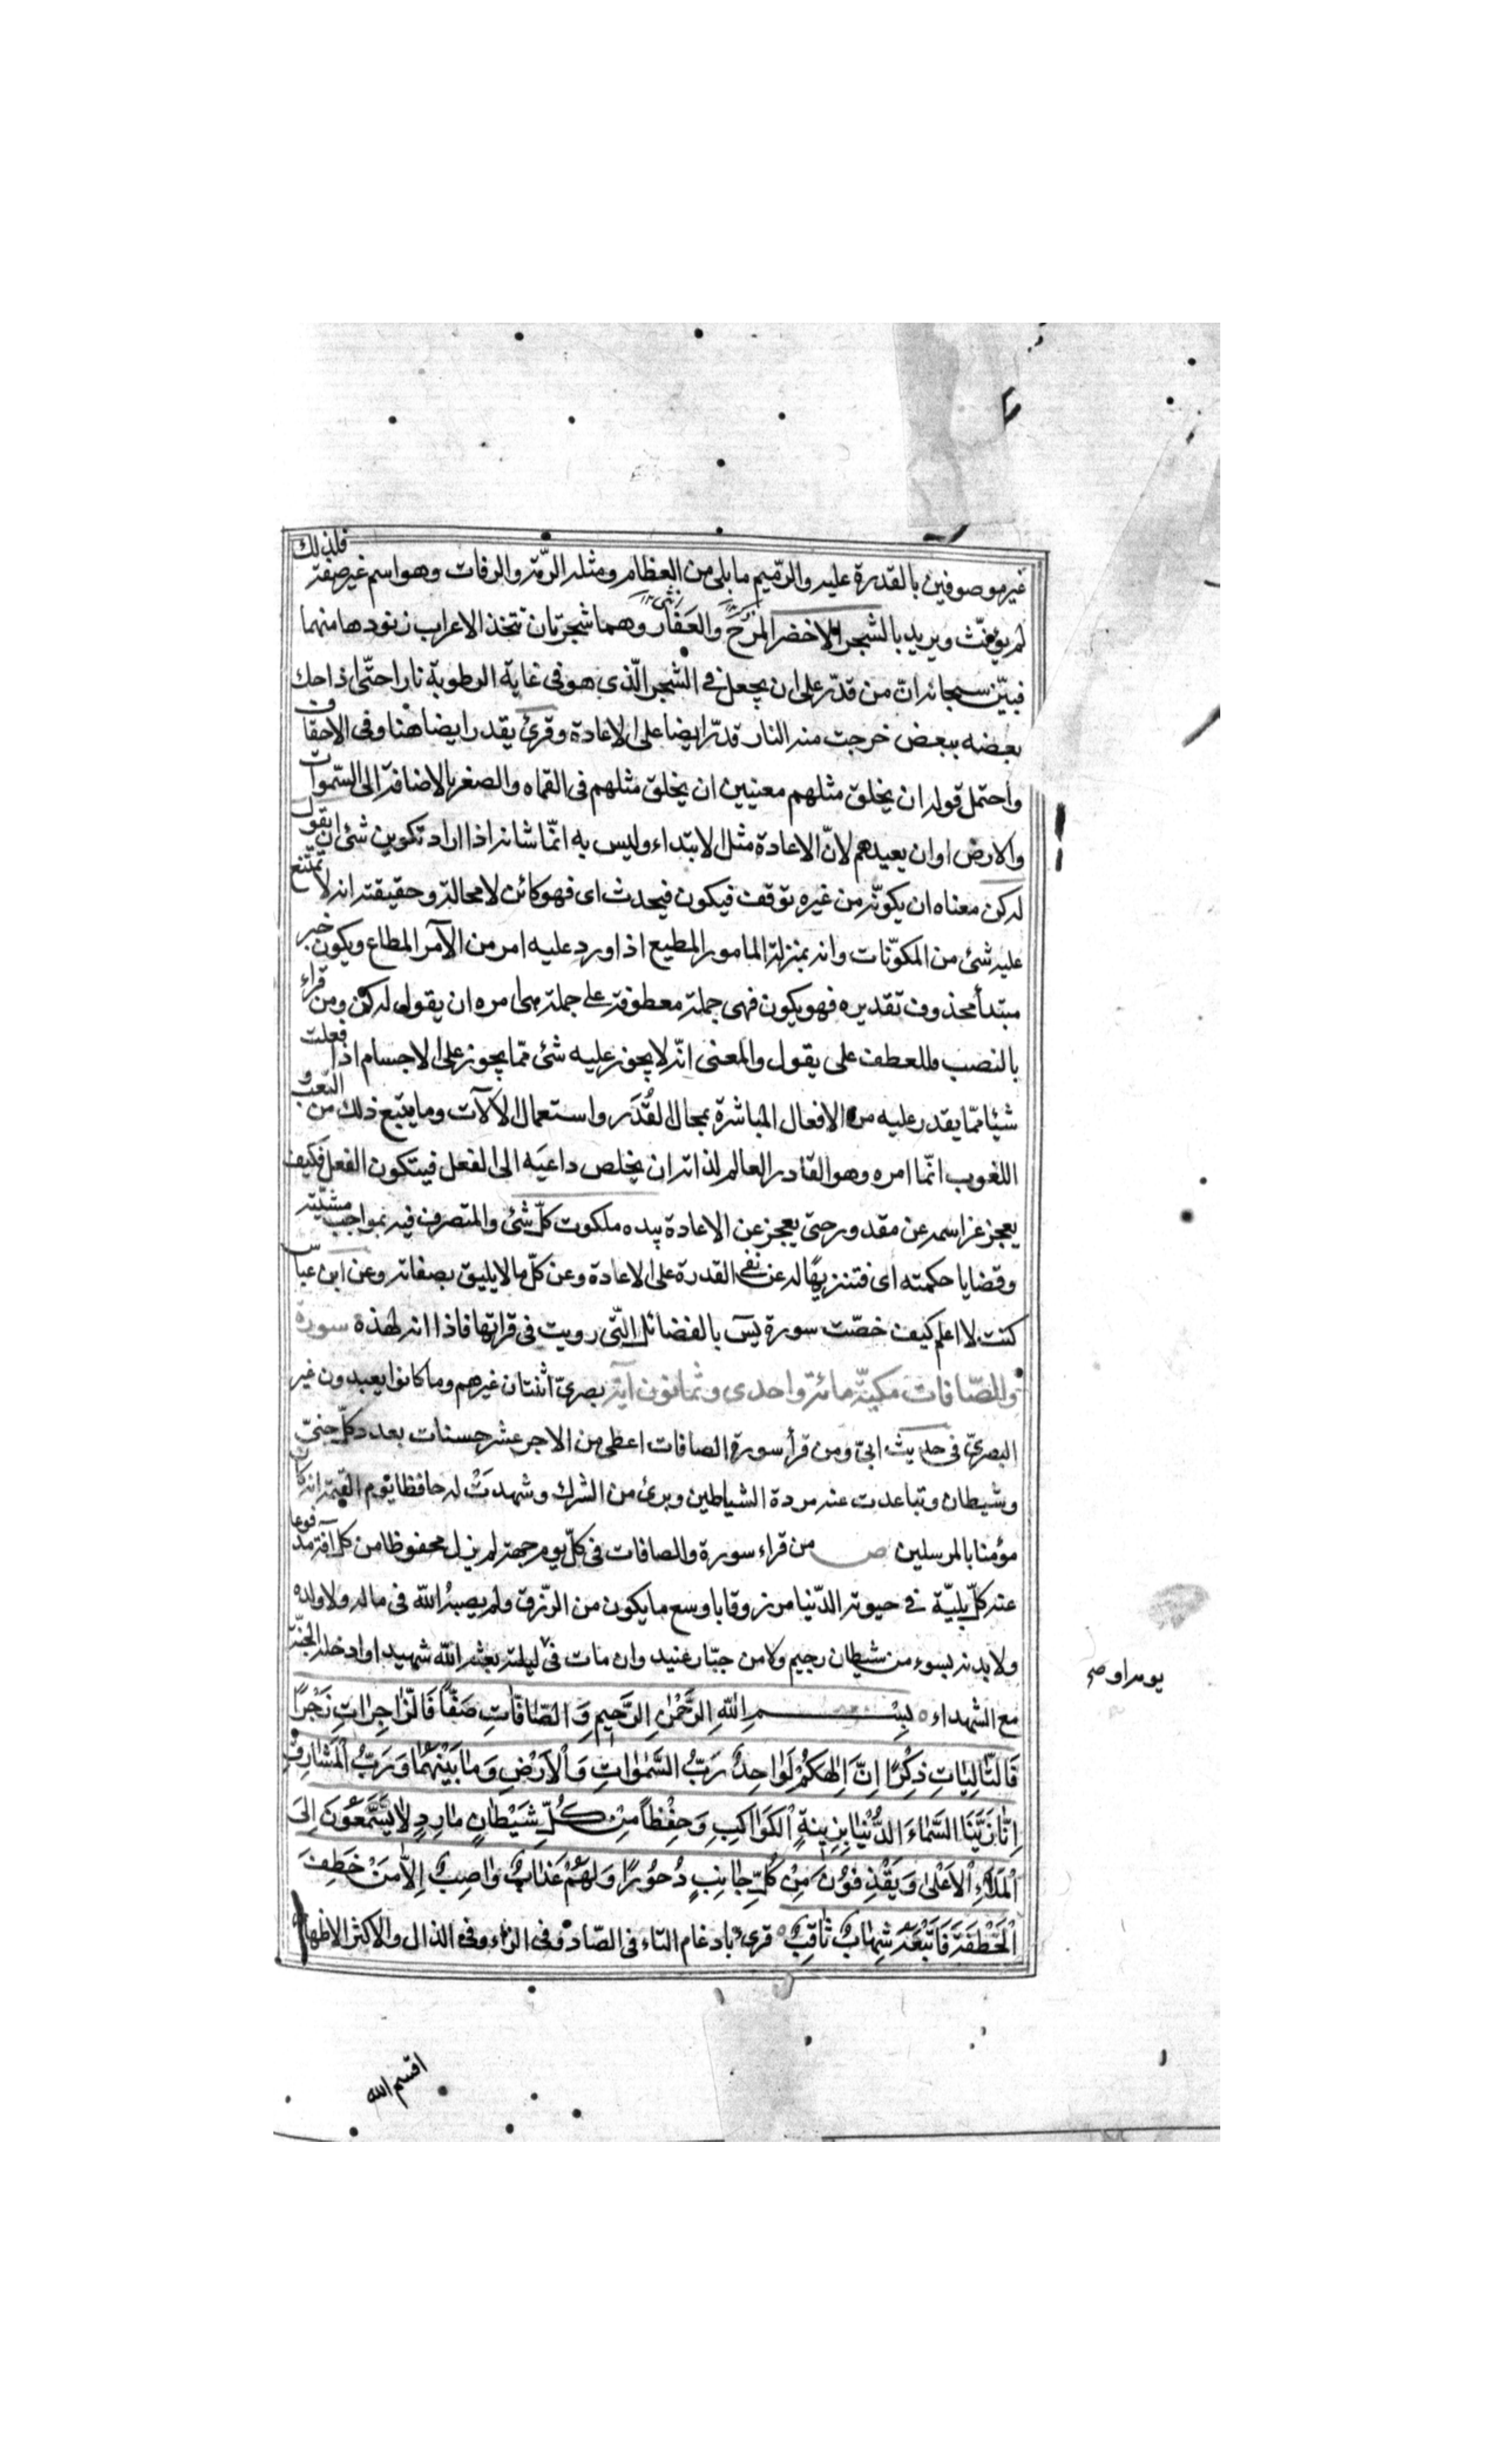 غير موصوفين بالقدرة عليه والرّميم ما بلى من العظام ومثله الرّمّة والرفات وهو اسم غير صفة فلذلك
لم يؤنّث ويريد بالشجر الاخضر المَرْخ والعَفار وهما شجرتان تتخذ الاعراب زنودها منهما
فبيّن سبحانه انّ من قدّر على ان يجعل في الشجر الّذى هو فى غاية الرطوبة نارا حتّى اذا حك
بعضه ببعض خرجت منه النار قدّر ايضا على الاعادة وقرئ يقدر ايضا هنا وفى الاحقاف
واحتمل قوله ان يخلق مثلهم معنيين ان يخلق مثلهم فى القماه والصغر بالاضافة الى السّموات
والارض او ان يعيدهم لانّ الاعادة مثل الابتداء وليس به انّما شانه اذا اراد تكوين شئ ان يقول
له كن معناه ان يكوّنه من غيره توقف فيكون فيحدث اى فهو كائن لا محالة وحقيقته انه لا يمتنع
عليه شئ من المكوّنات وانه بمنزلة المامور المطيع اذا ورد عليه امر من الآمر المطاع ويكون خبر
مبتدأ محذوف تقديره فهو يكون فهى جملة معطوفة على جملة هى امره ان يقول له كن ومن قراء
بالنصب فللعطف على يقول والمعنى انّه لا يجوز عليه شئ ممّا يجوز على الاجسام اذا فعلت
شيئا ممّا يقدر عليه من الافعال المباشرة بمحال القُدَر واستعمال الآلات وما يتبع ذلك من التعب و
اللغوب انّما امره وهو القادر العالم لذاته ان يخلص داعيَه الى الفعل فيتكون الفعل فكيف
يعجز عز اسمه عن مقدور حتى يعجز عن الاعادة بيده ملكوت كلّ شئ والمتصرف فيه بمواجب مشيّته
وقضايا حكمته اى فتنزيهًا له عن نفى القدرة على الاعادة وعن كلّ ما لا يليق بصفاته وعن ابن عباس
كنت لا اعلم كيف خصّت سورة يسۤ بالفضائل الّتى رويت فى قراتها فاذا انه لهذه سورة
والصّافات مكيّة مائة واحدى وثمانون آية بصرىّ اثنتان غيرهم وما كانوا يعبدون غير
البصرىّ فى حديث ابىّ ومن قرأ سورة الصافات اعطى من الاجر عشر حسنات بعدد كلّ جنىّ
وشيطان وتباعدت عنه مردة الشياطين وبرئ من الشرك وشهدَتْ له حافظا يوم القيمة انه كان
مؤمنا بالمرسلين ص من قراء سورة والصافات فى كلّ يوم جمعة لم يزل محفوظا من كل آفة مدفوعا
عنه كلّ بليّة في حيوته الدّنيا مرزوقا باوسع ما يكون من الرّزق ولم يصبهُ الله فى ماله ولا ولده
ولا بدنه بسوء من شيطان رجيم ولا من جبّار عنيد وان مات فى ليلته بعثه الله شهيدا وادخله الجنّة
يومه او صح
مع الشهداء ۵ بِسْمِ اللهِ الرَّحْمٰنِ الرَّحيمِ وَالصَّافَّاتِ صَفًّا فَالزّٰاجِرٰاتِ زَجْرًا
فَالتّٰالِيٰاتِ ذِكْرًا اِنَّ اِلٰهَكُمْ لَوٰاحِدٌ رَبُّ السَّمٰوٰاتِ وَالْاَرْضِ وَمٰا بَيْنَهُمٰا وَرَبُّ الْمَشٰارِقِ
اِنّٰا زَيَّنَّا السَّمٰاءَ الدُّنْيٰا بِزِينَةٍ الْكَوٰاكِبِ وَحِفْظاً مِنْ كُلِّ شَيْطٰانٍ مٰارِدٍ لٰا يَسَّمَّعُونَ اِلَى
الْمَلَاءِ الْاَعْلىٰ وَيُقْذَفُونَ مِنْ كُلِّ جٰانِبٍ دُحُورًا وَلَهُمْ عَذٰابٌ وٰاصِبٌ اِلّٰا مَنْ خَطِفَ
الْخَطْفَةَ فَاَتْبَعَهُ شِهٰابٌ ثٰاقِبٌ ۵ قرئ بادغام التاء فى الصّاد وفى الزاء وفى الذال والاكثر الاظهار
اقسم الله